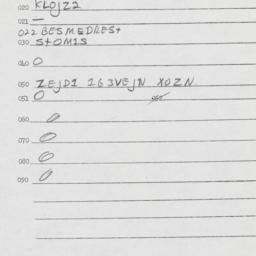 020 KLOJZ2
021 —
022 BESMEDREST
030 STOMIS
040 O
050 ZEJDI 163VEJN XOZN
051 O
060 0
070 0
080 0
090 0